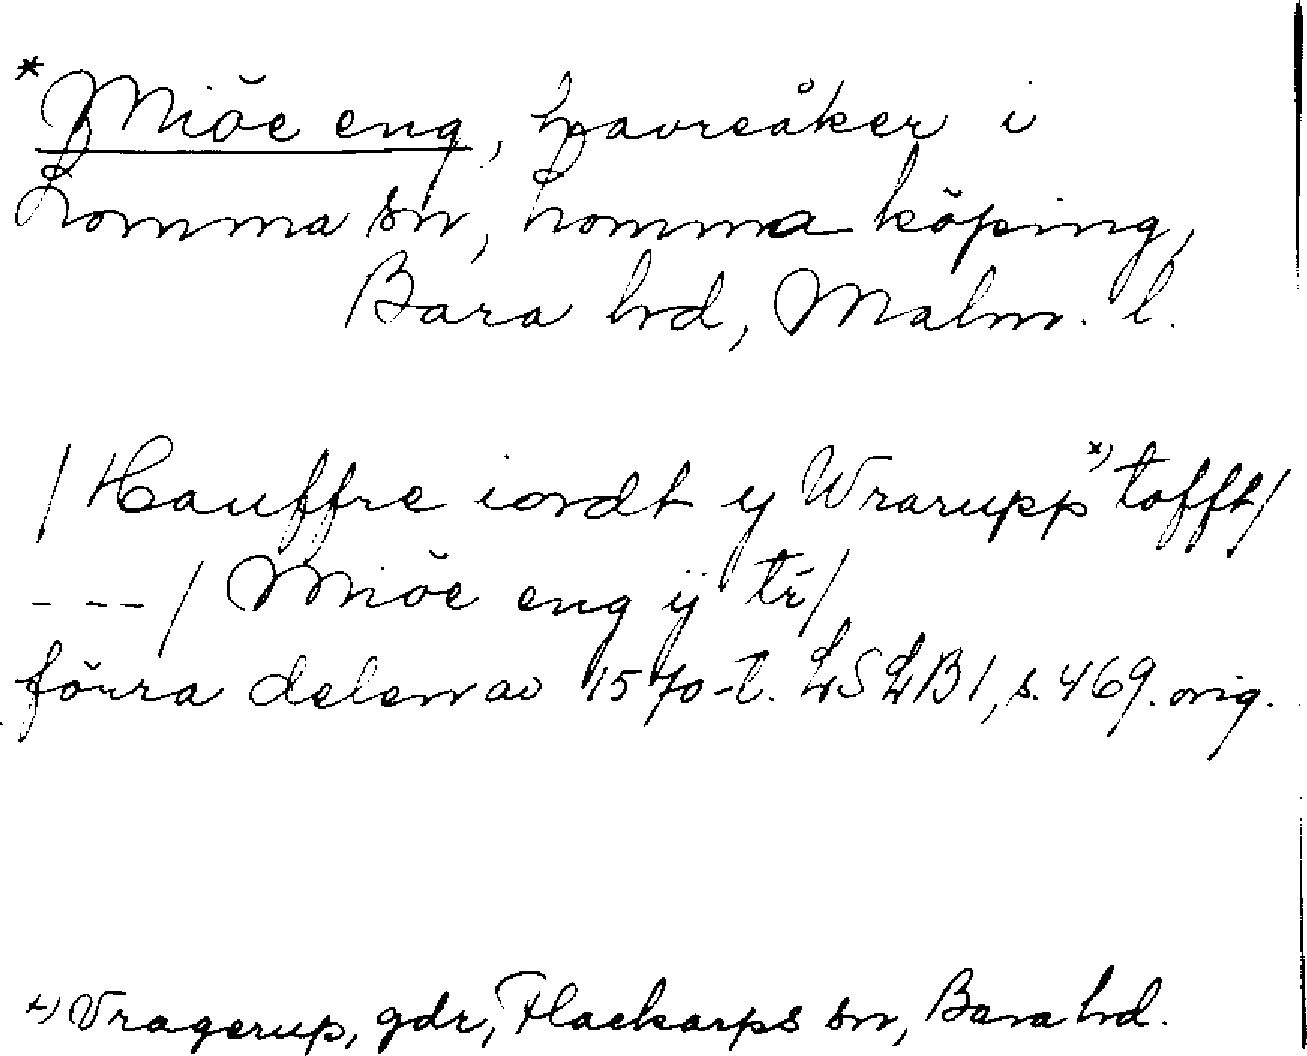 *Miöe eng, havreåker i
Lomma sn, Lomma köping,
Bara hd, Malm. l.
/ Hauffre iordt y Wrarupp x) tofft/
--- / Miöe eng ÿ tí/
förra delen av 1570-t. LSLB 1, s. 469. orig.
x) Vragerup, gdr, Flackarps sn, Bara hd.